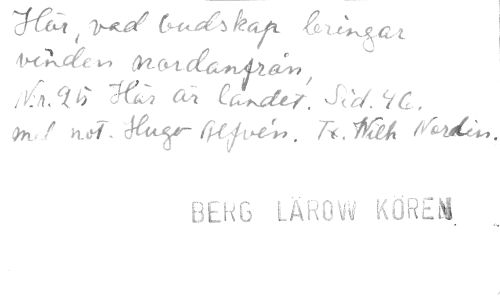 Hör, vad budskap bringar
vinden nordanfrån,
Nr. 25 Här är landet. Sid. 46.
med not. Hugo Alfvén. Tx. Wilh Nordin.
BERG LÄROW KÖREN